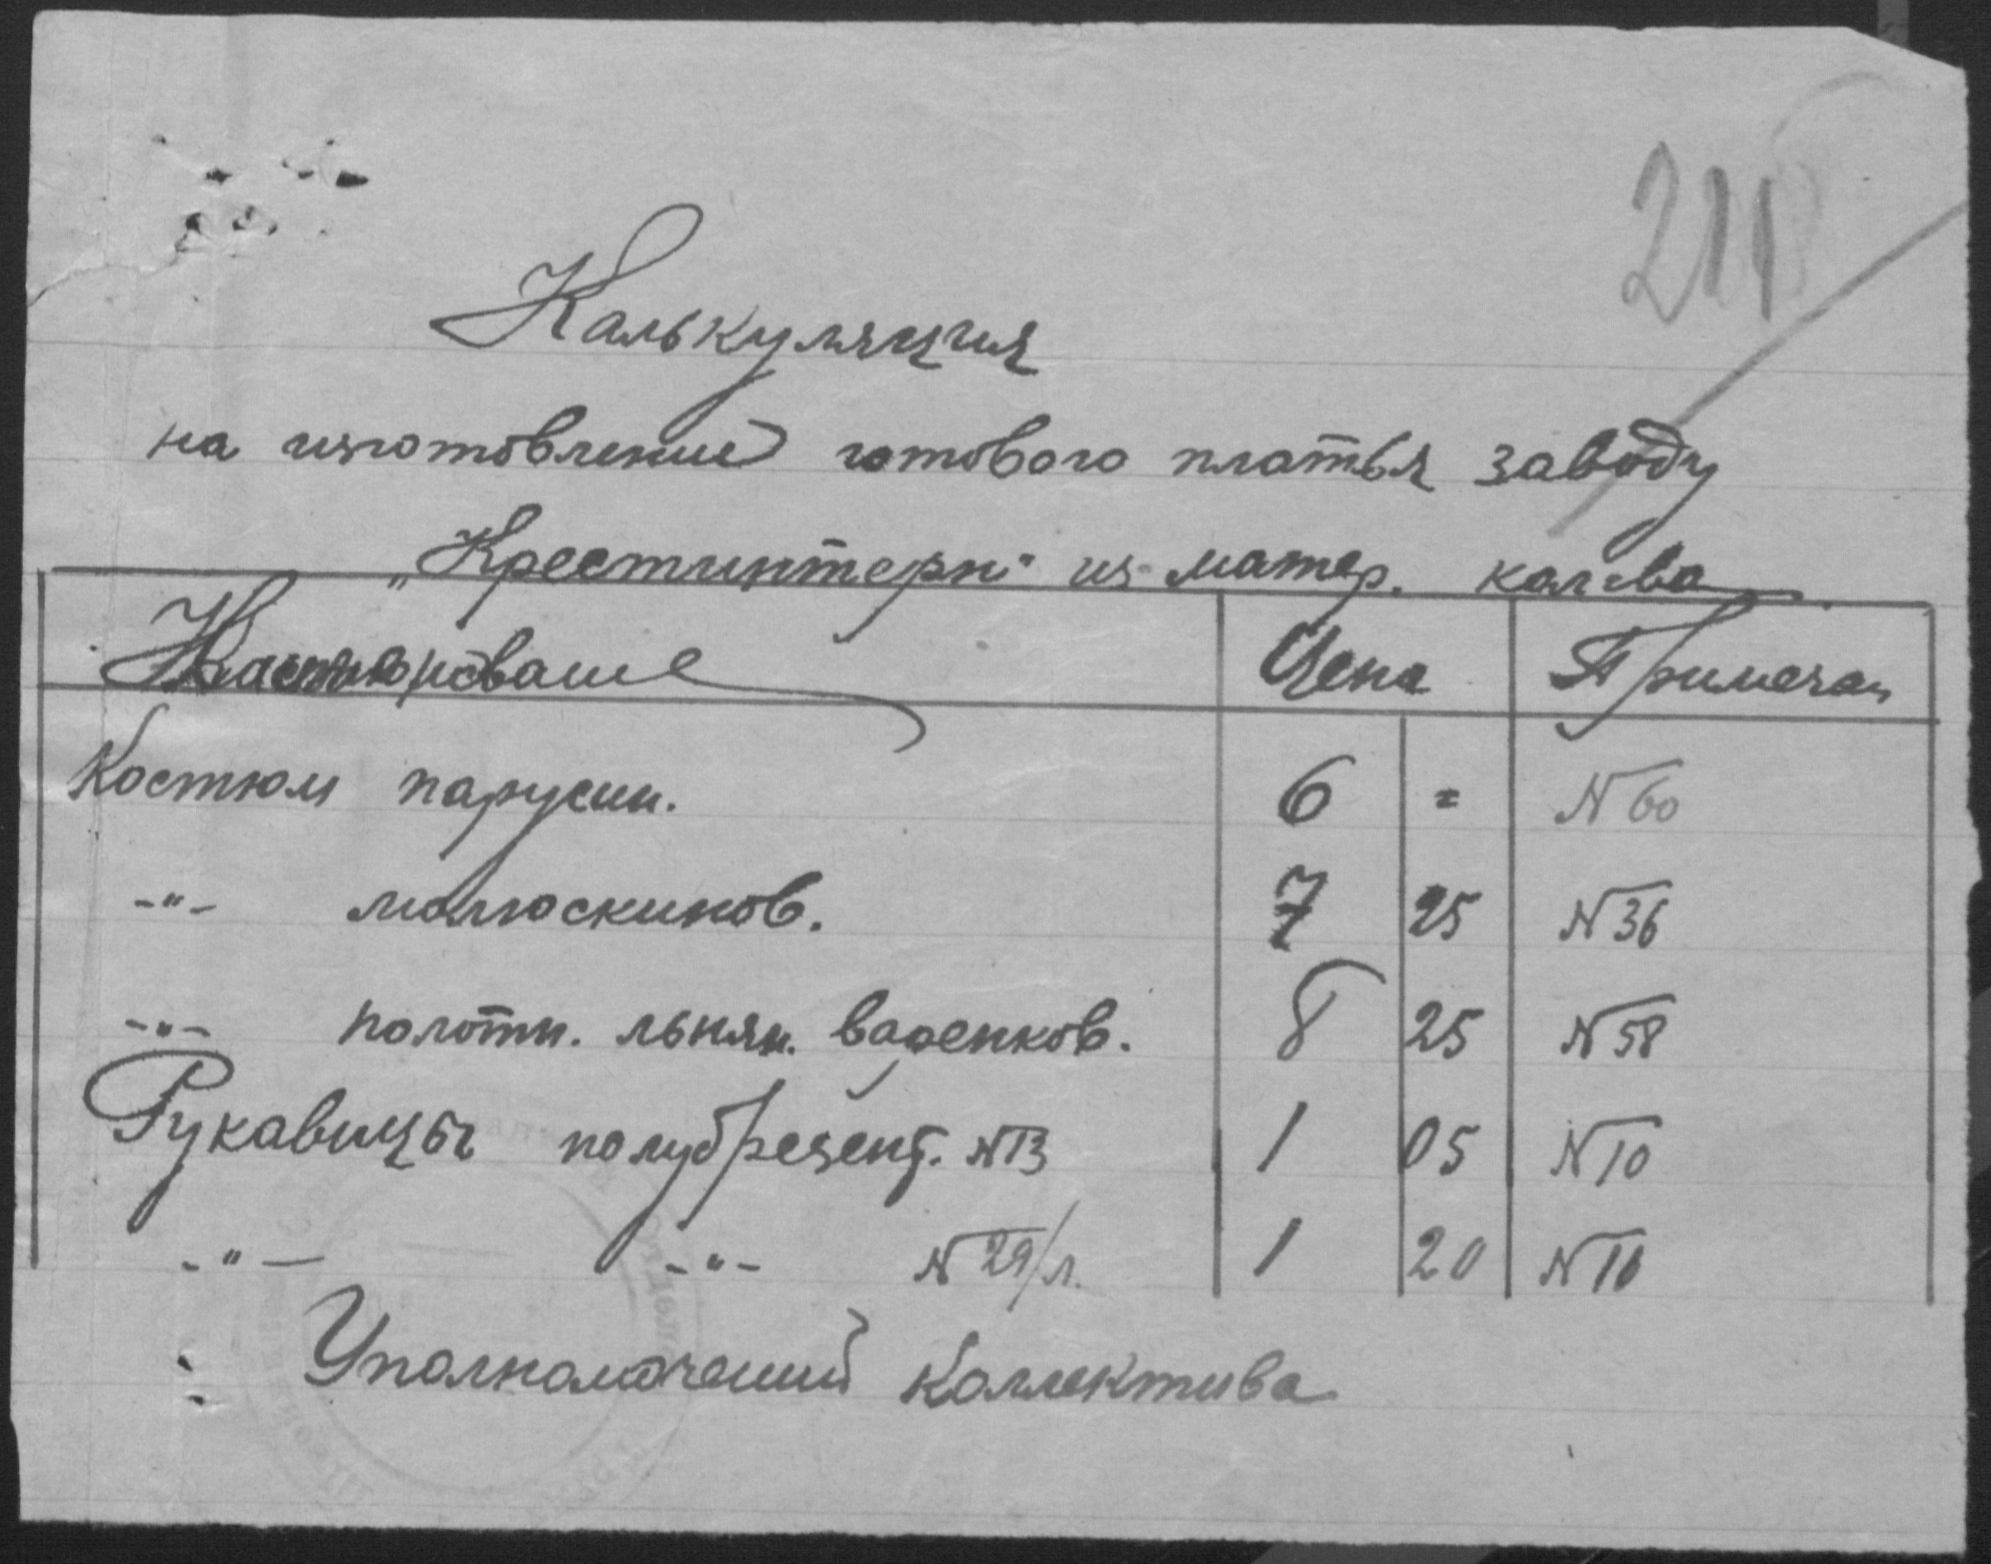 211
Калькуляция
на изготовление готового платья заводу
„Крестинтерн" из матер. кол-ва.
Цена Примечан
Костюм парусин. 6 = N 60
-"- молюскинов. 7 25 N 36
-"- полотн. льнян. 8 25 N 58
Рукавицы полубрезент. N 13 1 05 N 10
-"- -"- N 29/л. 1 20 N 10
Уполномоченный Коллектива